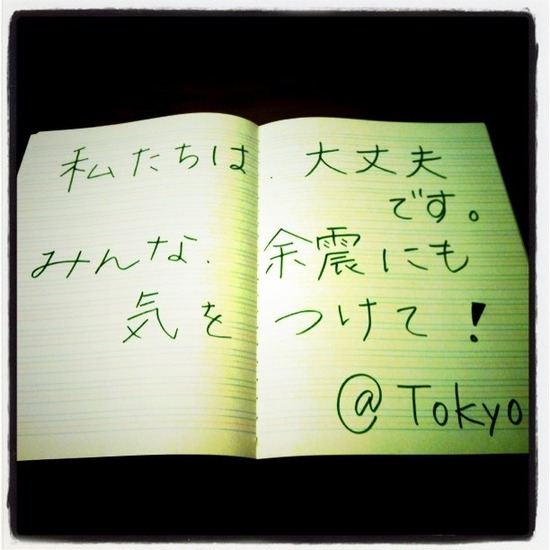 私たちは、大丈夫
です。
みんな、余震にも
気をつけて!
@Tokyo